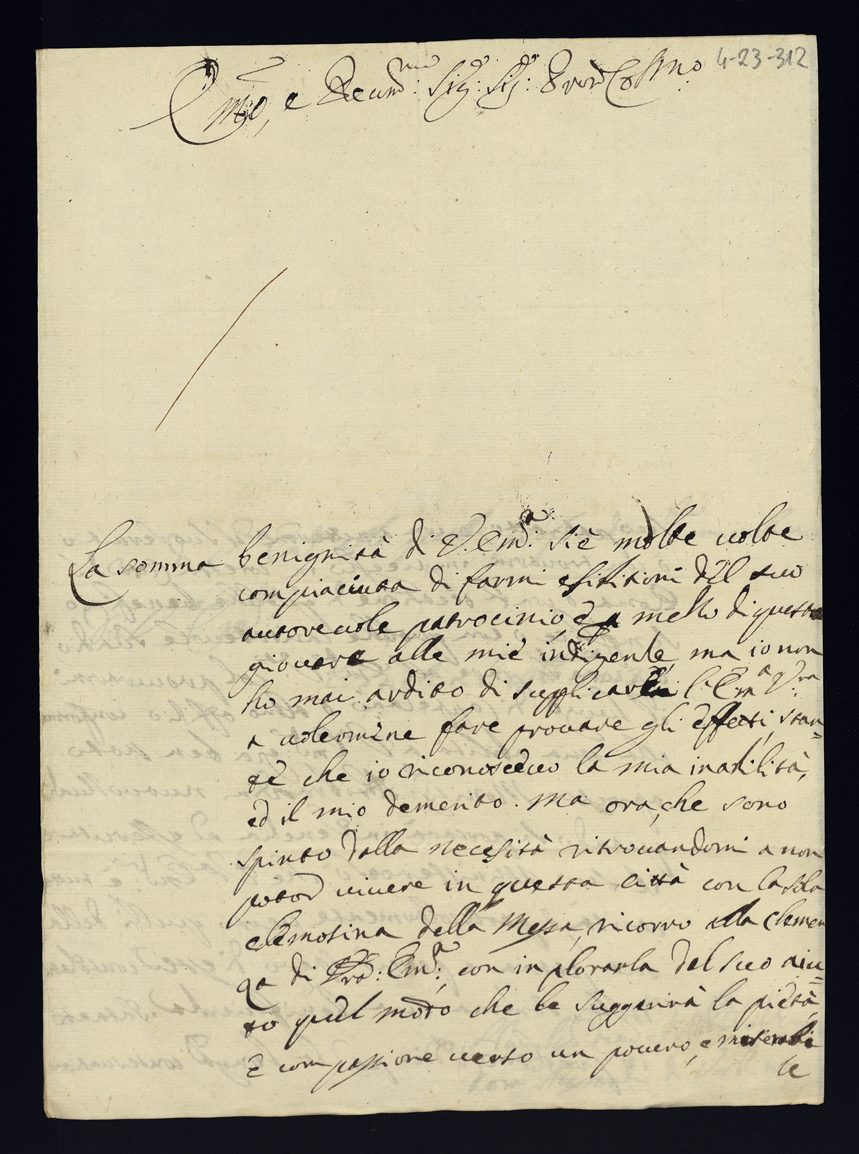 4-23-312
Em̃o, e Reum̃: Sig: Sig: Pron Col̃mo
La somma benignità di V. Em̃: si è molte uolte
compiaciuta di farmi esibitioni del suo
autoreuole patrocinio, e a mezzo di questo
giouare alle mie indigenze, ma io non
ho mai ardito di supplicarla l'Em̃a Vra
a uolermene fare prouare gli effetti, stan=
te che io riconosceuo la mia inabilità,
ed il mio demerito. Ma ora, che sono
spinto dalla necessità ritrouandomi a non
poter uiuere in questa Città con la sola
elemosina della Messa, ricorro alla clemen
za di Vra: Em̃:, con implorarla del suo aiu=
to quel modo che le suggerirà la pietà,
e compassione uerso un pouero, e miserabi
le